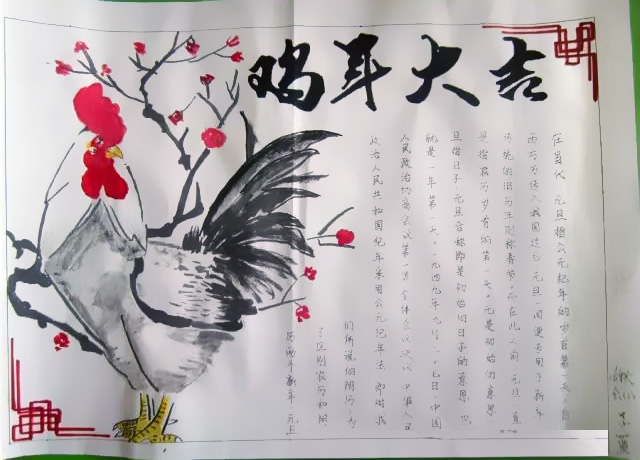 鸡年大吉
在当代,元旦指公元纪年的岁首第一天。自
西历传入我国以后,元旦一词便专用于新年
传统的旧历年则称春节。而在此之前,元旦一直
是指农历岁首的第一天。元是初始的意思
旦指日子,元旦合称即是初始的日子的意思,也
就是一年第一天。一九四九年九月二十七日,中国
人民政治协商会议第一届全体会议决议,中华人民
政治人民共和国纪年采用公元纪年法,即
们所说的阳历,为
了区别农历和阳
历两个新年,元旦